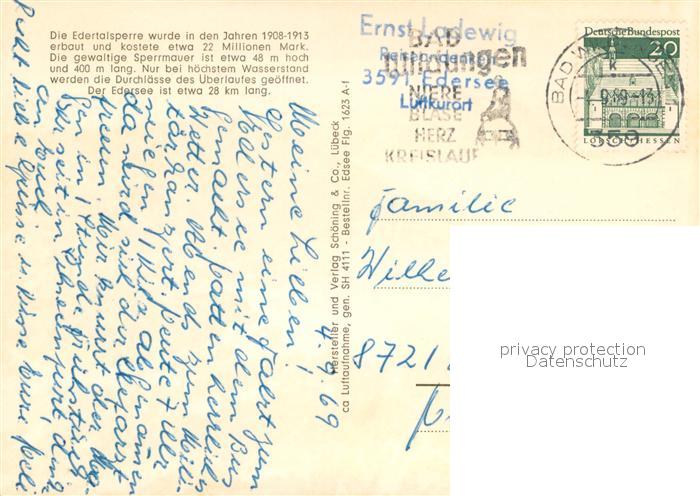 Die Edertalsperre wurde in den Jahren 1908-1913
erbaut und kostete etwa 22 Millionen Mark.
Die gewaltige Sperrmauer ist etwa 48 m hoch
und 400 m lang. Nur bei höchstem Wasserstand
werden die Durchlässe des Überlaufes geöffnet.
Der Edersee ist etwa 28 km lang.
Ernst Ladewig
Reiseandenken
3591 Edersee
Luftkurort
BAD
Wildungen
NIERE
BLASE
HERZ
KREISLAUF
Deutsche Bundespost
20
LORSCH/HESSEN
BAD WILDUNGEN
359
Hersteller und Verlag Schöning & Co., Lübeck
ca Luftaufnahme, gen. SH 4111 - Bestellnr. Edsee Flg. 1623 A-f
4.9.69
Meine Lieben!
Gestern eine Fahrt zum
Edersee mit dem Bus
gemacht, hatten herrliches
Wetter. Abends zum Mili-
heute
wiegen, 1 Kilo abgenommen
da wird sich der Chefarzt
freuen. Mir knurrt der Ma-
gen, in 1 Stunde
Familie
8721
privacy protection
Datenschutz